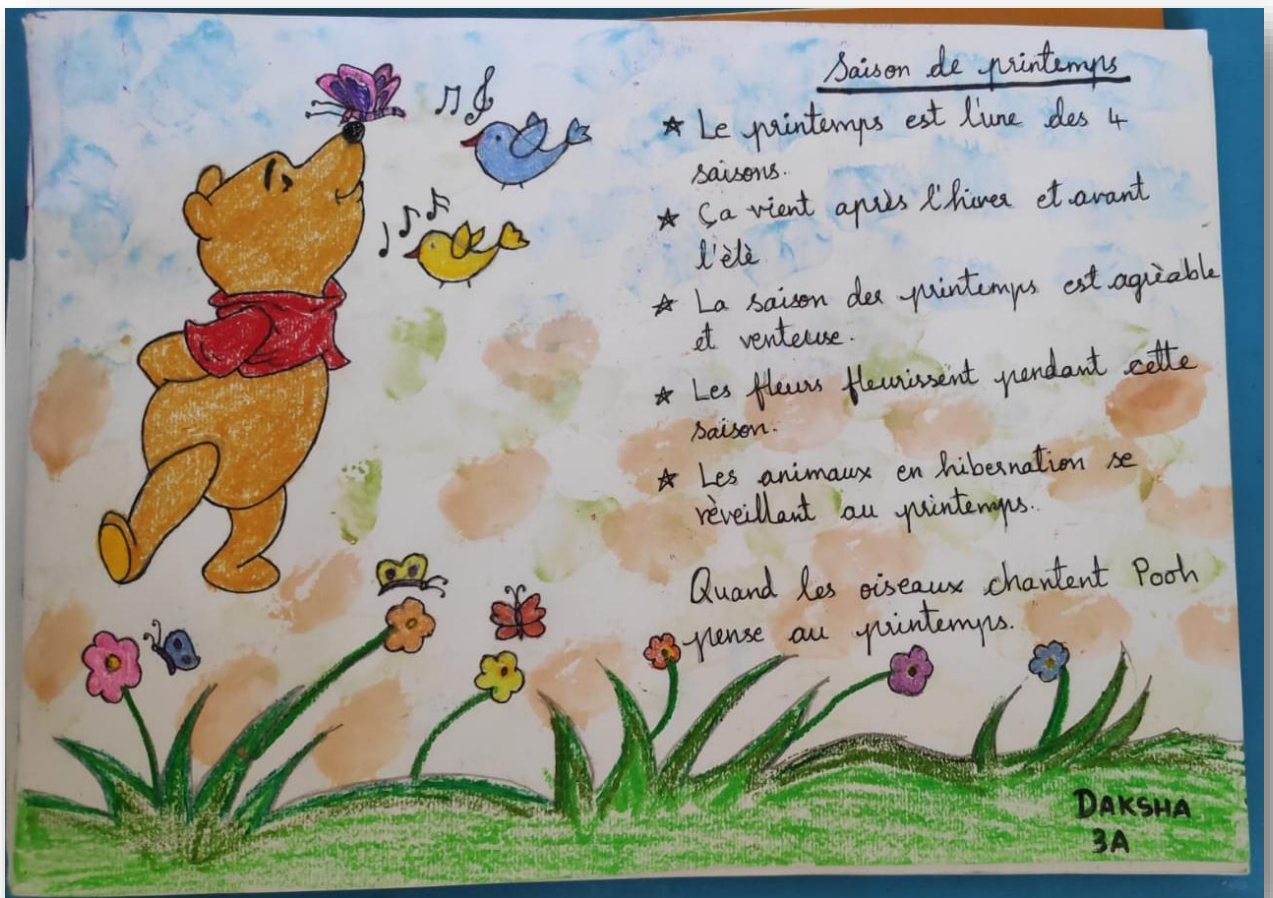 Saison de printemps
☆ Le printemps est l'une des 4
saisons.
☆ Ça vient après l'hiver et avant
l'étè
☆ La saison des printemps est agrèable
et venteuse.
☆ Les fleurs fleurissent pendant cette
saison.
☆ Les animaux en hibernation se
rèveillant au printemps..
Quand les oiseaux chantent Pooh
pense au printemps.
DAKSHA
3A